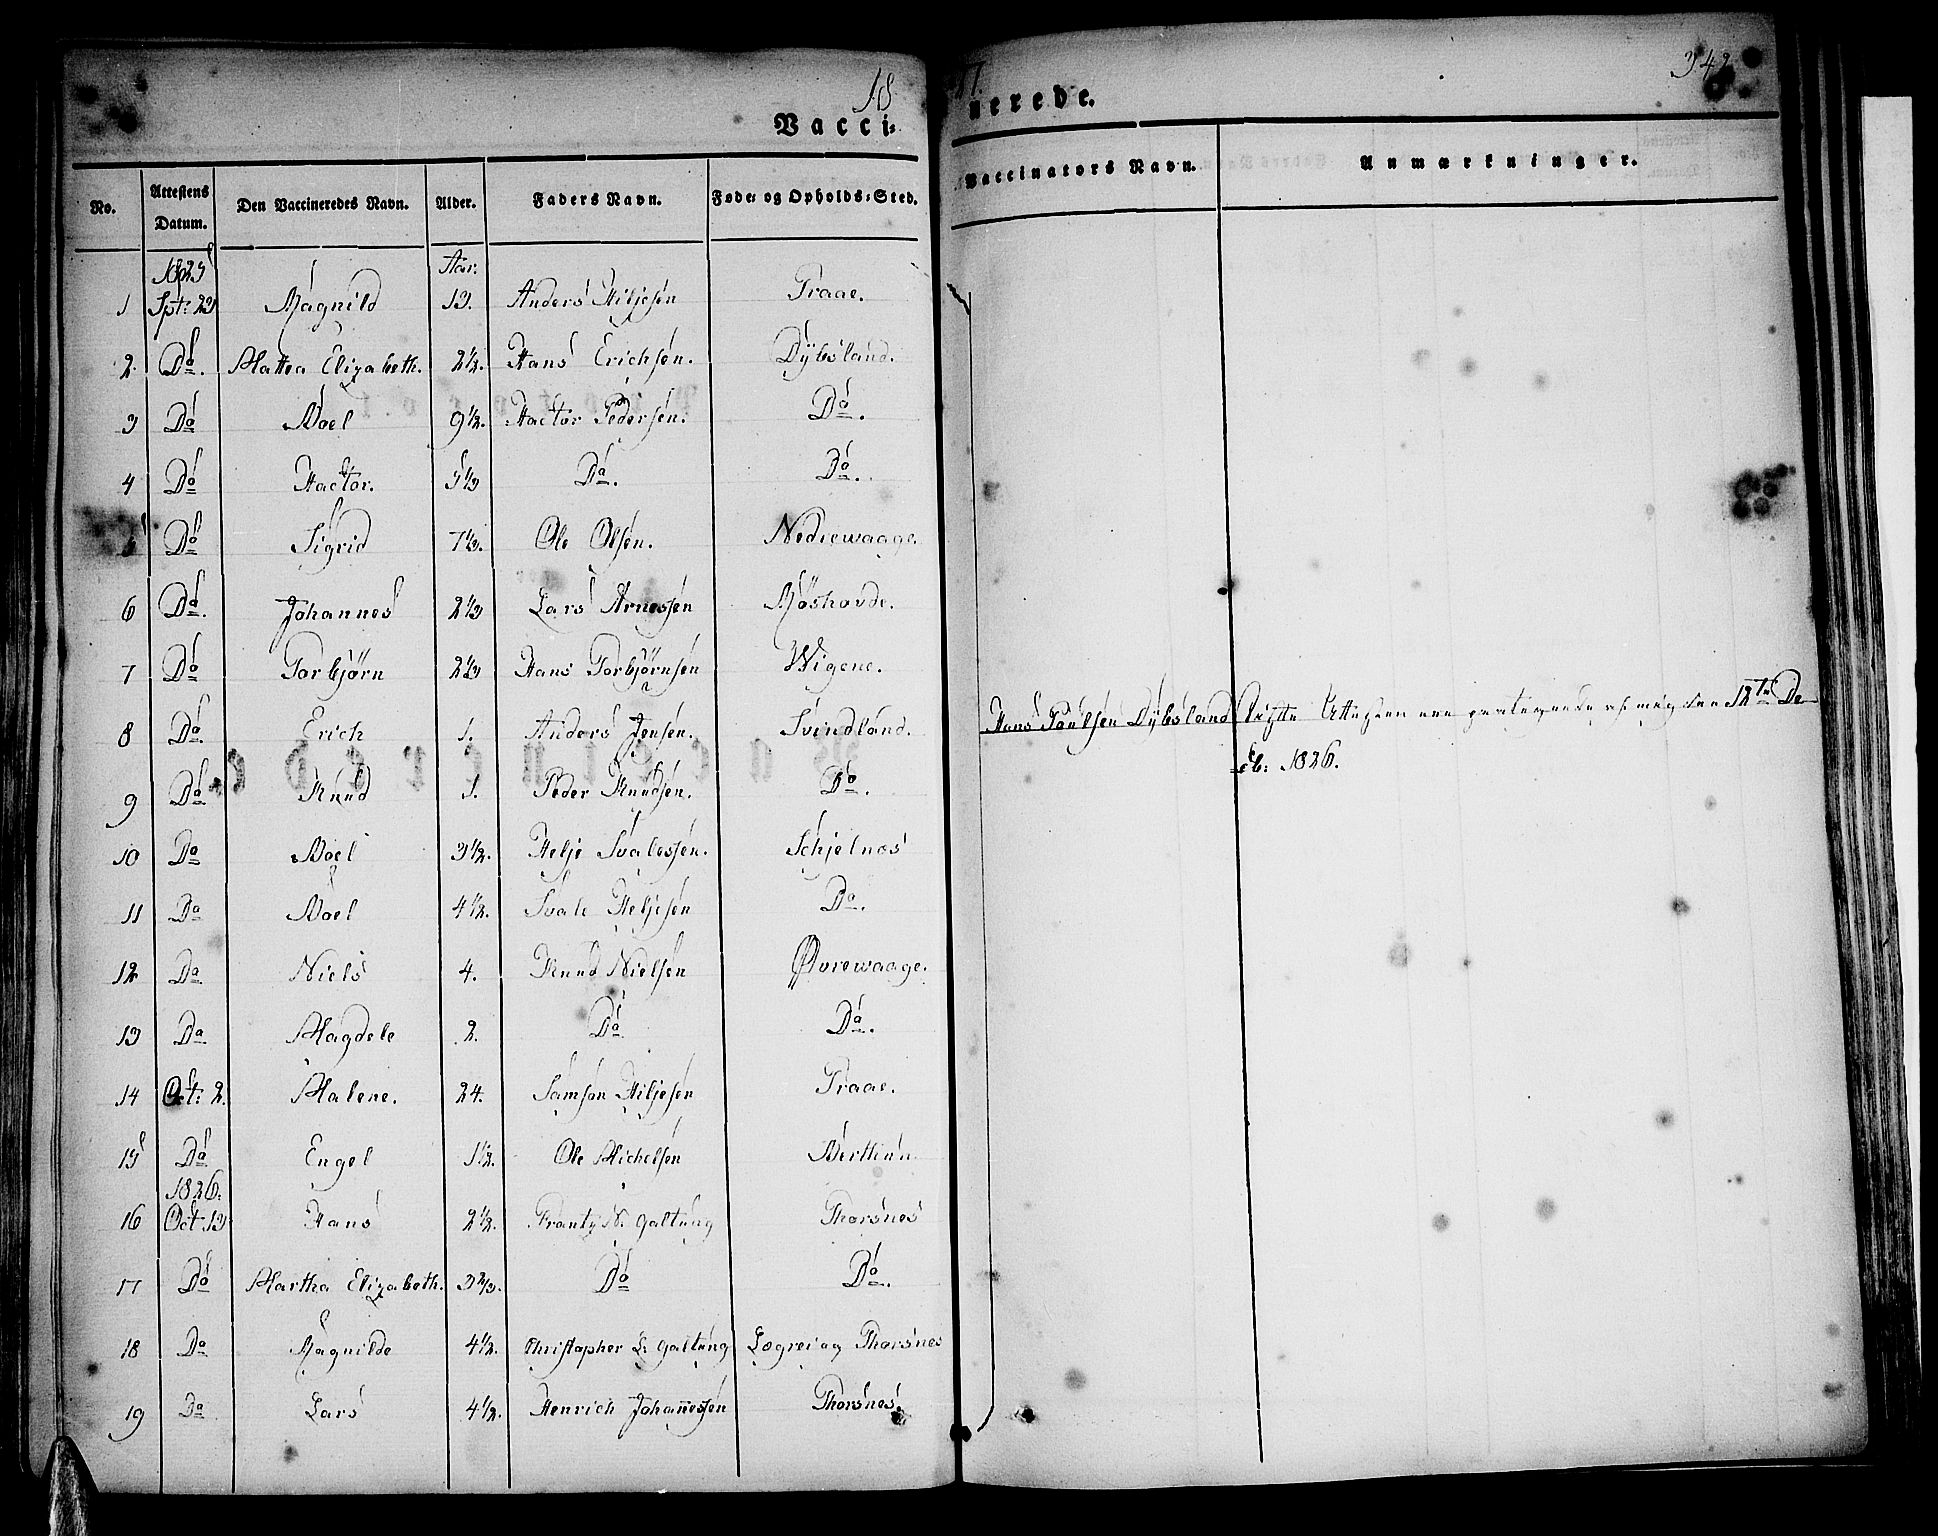 18
Vacci-
No. Attestens Datum. Den Vaccineredes Navn. Alder. Faders Navn. Føde- og Opholds-Sted.
1825 Aar.
1 Spt: 23 Magnild 13. Anders Hiljesen Traae.
2. Do. Martha Elizabeth. 2½. Hans Erichsen. Dybsland.
3 Do Boel 9½. Hactor Pedersen. Do.
4 Do Hactor. 5⅓ Do. Do.
5 Do Sigrid 7⅓. Ole Olsen. Nediewaage.
6 Do. Johannes 2⅓ Lars Arnessen Møshovde.
7 Do Torbjørn 2⅓ Hans Torbjørnsen Wigene.
8 Do. Erich 1. Anders Jensen. Svindland.
9 Do Knud 1. Peder Knudsen. Do.
10 Do Boel 3½. Helje Svalessen. Schjelnæs
11 Do Boel 4½. Svale Heljesen Do.
12 Do Niels 4. Knud Nielsen Øvrewaage.
13 Do Magdele 2. Do Do.
14 Oct: 2. Malene. 24. Samson Hiljesen Traae.
15 Do Engel 1½. Ole Michelsen
1826.
16 Oct: 13 Hans 2½. Frantz N. Galtung Thorsnes
17 Do Martha Elizabeth. 3⅔. Do Do.
18 Do Magnilde 4½. Christopher L: Galtung Løgrei og Thorsnes
19 Do Lars 4½. Henrich Johannessen Thorsnes.
17.
342
nerede.
Vaccinators Navn. Anmærkninger.
Hans Poulsen Dybsland Attesten af mig den 12te De-
cb: 1826.